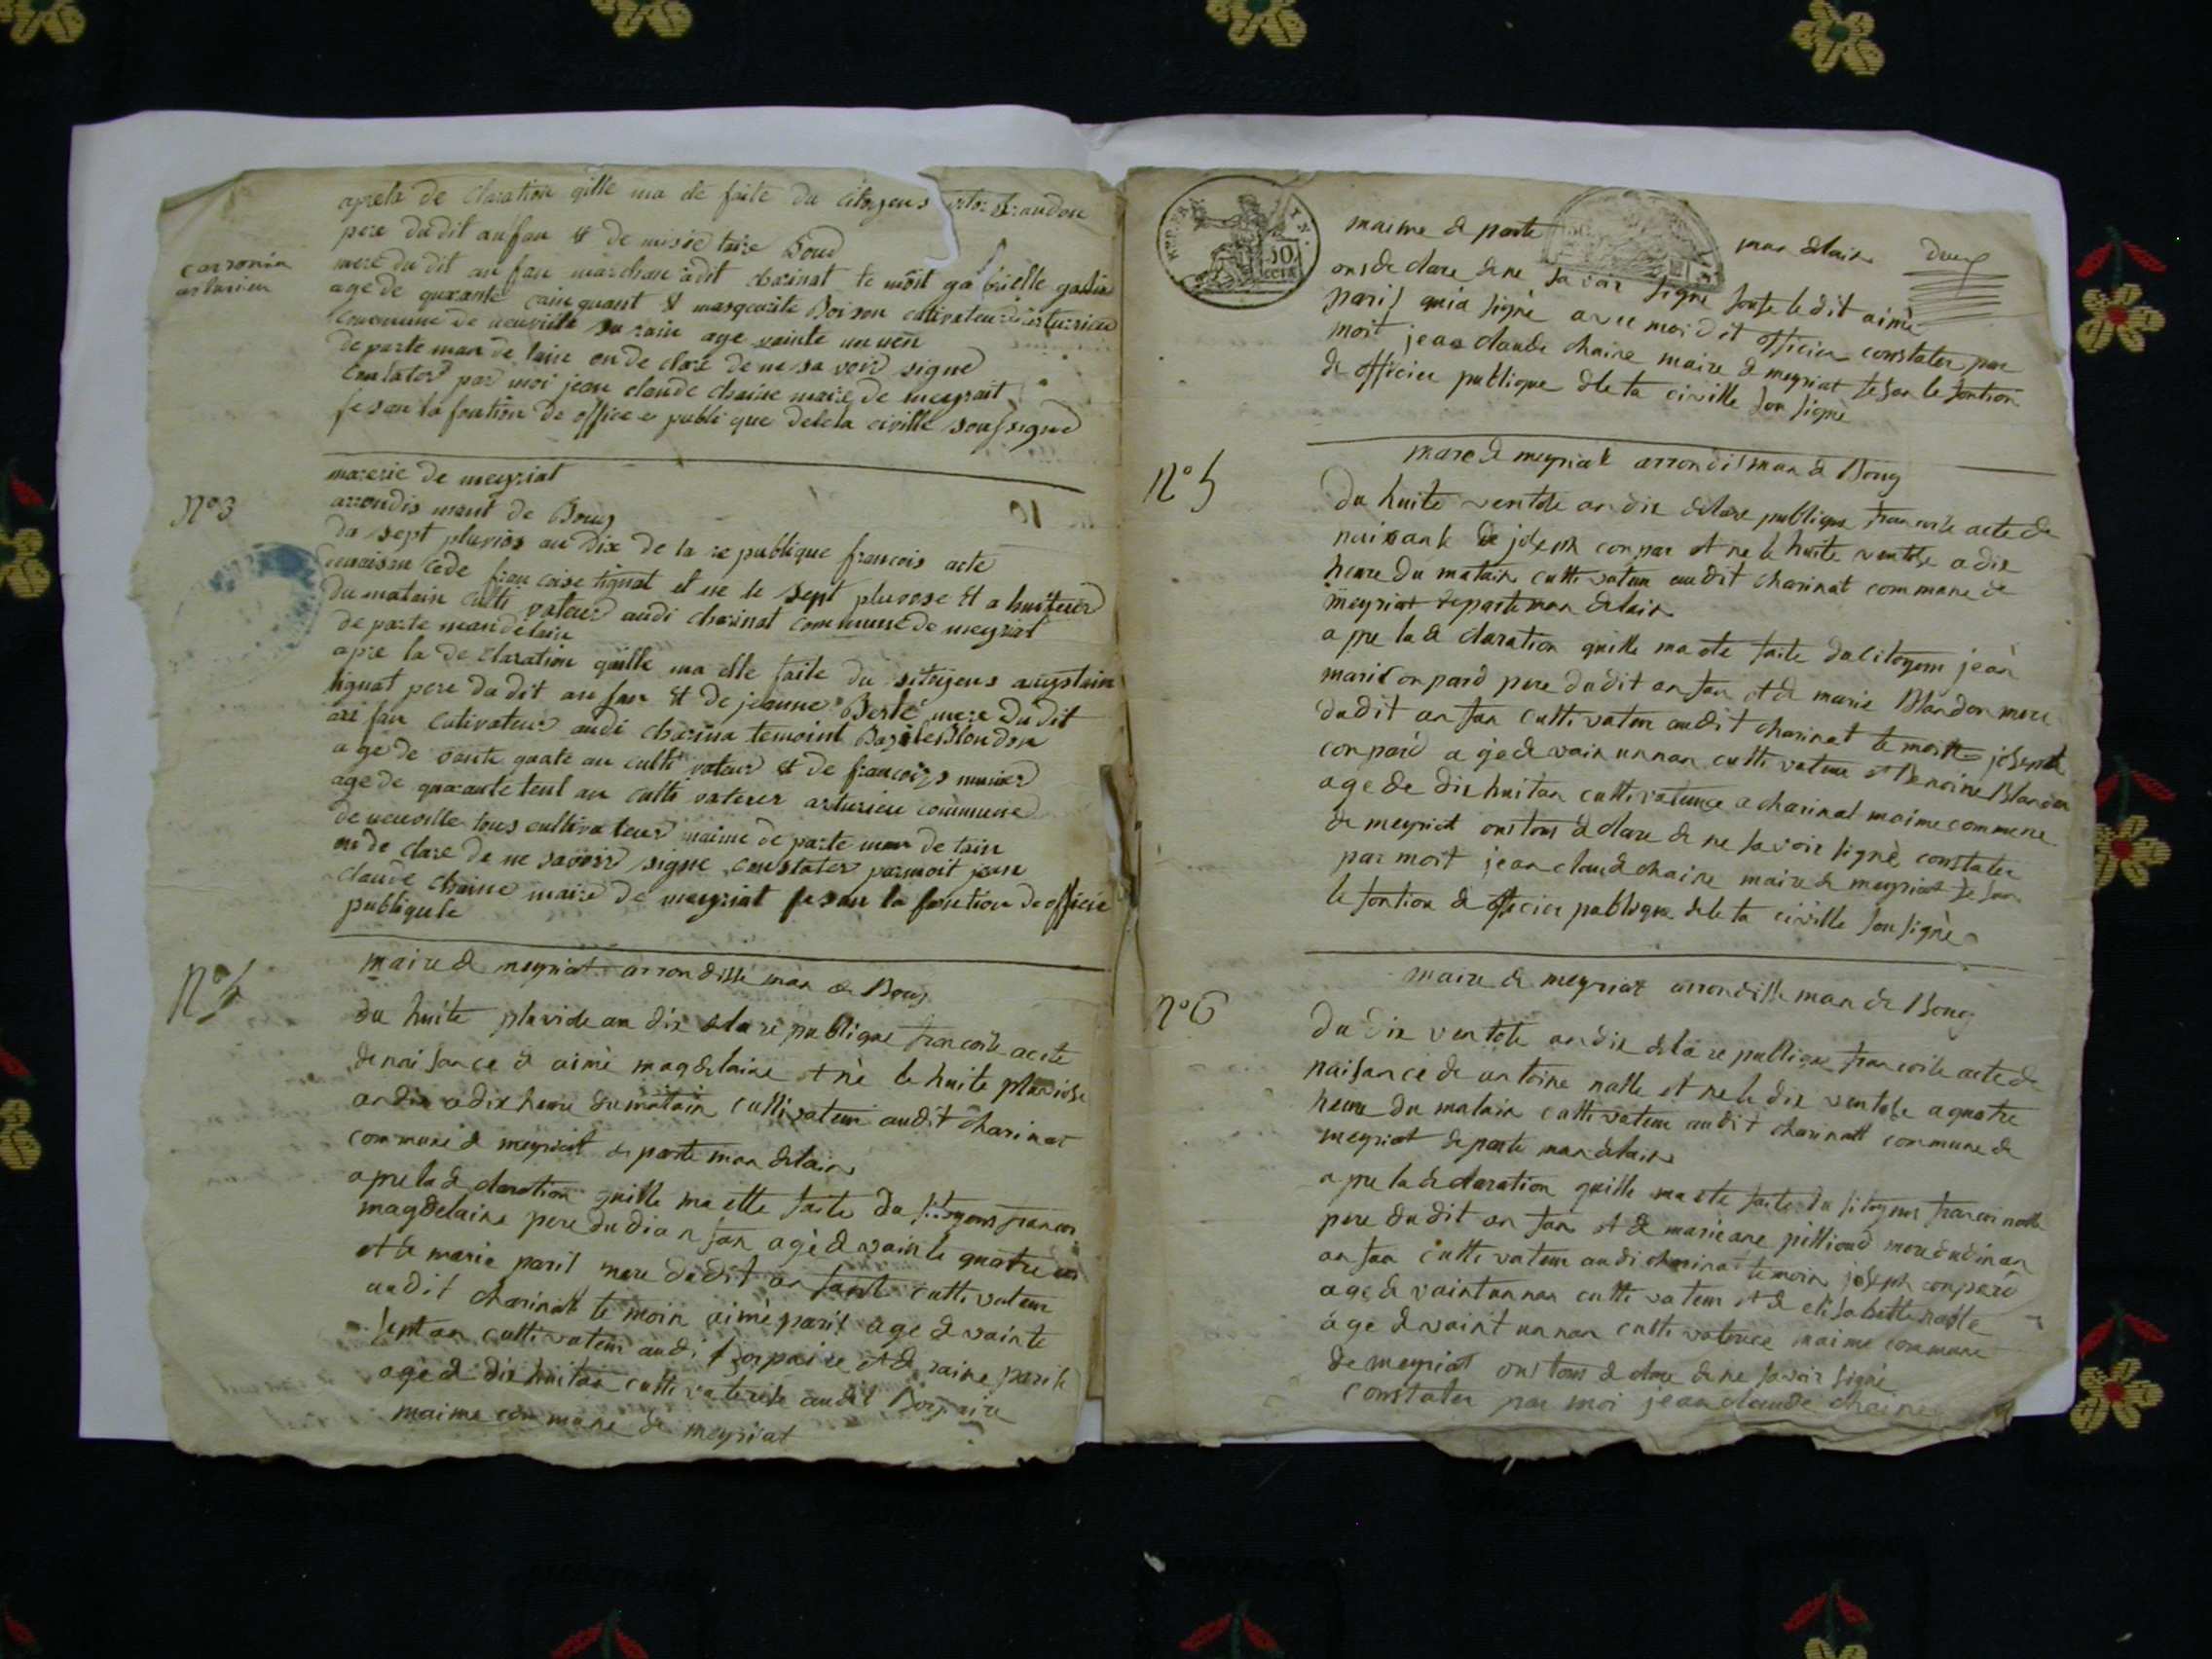 aprela de claration qille ma ete faite du citoyens blandon
pere dudit anfan et de misie taire Boud
carronin
arturieu
mere du dit an fan marchan adit charinat te moit gabrielle
age de quarante cainquant et margearite Boison cultivateur
commune de neuville su rain age vainte un uen
de parte man de lain on de claré de ne sa voir signe
constater par moi jean claude chaine maire de meyriat
fesan la fontion de officer publi que delela civille sousigne
marerie de meyriat
N° 3
arrondis ment de Bourg
du sept pluvios an dix de la re publique francois acte
denaisan cede fran coise tignat et ne le sept pluvose et a huiteure
du matain culti vateur audi charinat commune de meyriat
de parte man de lain
apre la de claration quille ma elle faite du sitoyens augstain
tignat pere du dit an fan et de jeanne Berte mere du dit
an fan cutivateur audi charina temoint Basile Blondon
age de vainte quate an culti vateur et de francois munier
age de quarante teul an culti vateur arturieu commune
de neuville tous cultivateur maime de parte man de lain
on de clare de ne savoir signe constater parmoit jean
claude chaine maire de meyriat fesan la fontion de officie
publiquele
N° 4
maire de meyriat arrondisse man de Bourg
du huite pluviose an dix dela re publique francoise acite
de naisance de aimé magdelaine et né le huite pluviose
andix a dix heure du matain cultivateur audit charinat
commune de meyriat de parte man delain
apre la de claration quille ma ette faite du sitoyens francois
magdelaine pere dudi an fan agé de vainte quatre an
et de marie paris mere dudit anfant cultivateur
audit charinat te moin aimé paris age de vainte
sept an cultivateur audi Bospaire et de raine paris
age de dix huitan cultivateuse audit Bospaire
maime commune de meyriat
maime de parte man delain
deux
ons de clare de ne savoir signe soufe ledit aimé
paris quia signé avec moi dit officier constater par
moit jean claude chaine maire de meyriat fesan le fontion
de officier publique dele ta civille sou signé
N° 5
mare de meyriat arrondisman de Bourg
du huite ventose an dix delare publique francoise acte de
naisance de joseph conpar et ne le huite ventose a dix
heure du matain cultivateur audit charinat commune de
meyriat departeman delain
apre la de claration quille ma ete faite du citoyen jean
marie conpard pere dudit anfan et de marie Blandon mere
dudit an fan cultivateur audit charinat te moitte joseph
conpard age de vain unnan cultivateur et Benoine Blandon
age de dix huitan cultivateuse a charinat maime commene
de meyriat ons tous de clare de ne savoir signé constater
par moit jean claude chaine maire de meyriat fe san
le fontion de officier publique dele ta civille sousigné
N° 6
maire de meyriat arrondisse man de Bourg
du dix ventose andix dela re publique francoise acte de
naisance de antoine nalle et ne le dix ventose a quatre
heure du matain cultivateur audit charinatt commune de
meyriat de parte man delain
apre la de claration quille ma ete faite du sitoyens francoi nalle
pere dudit an fan et de marie ane pillioud mere dudinan
an fan cultivateur audi charinat temoin joseph conpard
age de vaint unnan cultivateur et de elisabette nalle
age de vaint unnan cultivateuce maime commune
de meyriat ons tous de clare de ne savoir signé
constater par moi jean claude chaine